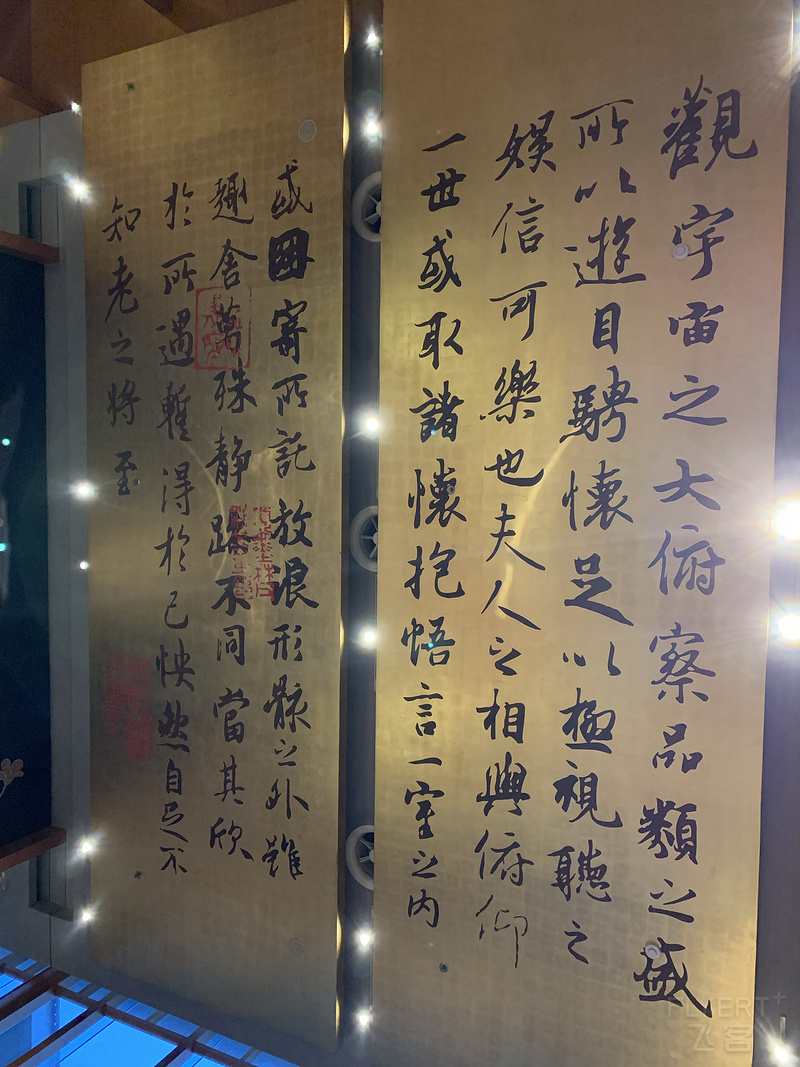 觀宇宙之大俯察品類之盛
所以遊目騁懷足以極視聽之
娛信可樂也夫人之相與俯仰
一世或取諸懷抱悟言一室之內
或因寄所託放浪形骸之外雖
趣舍萬殊静躁不同當其欣
於所遇暫得於己怏然自足不
知老之將至
FLYERT+
飞客